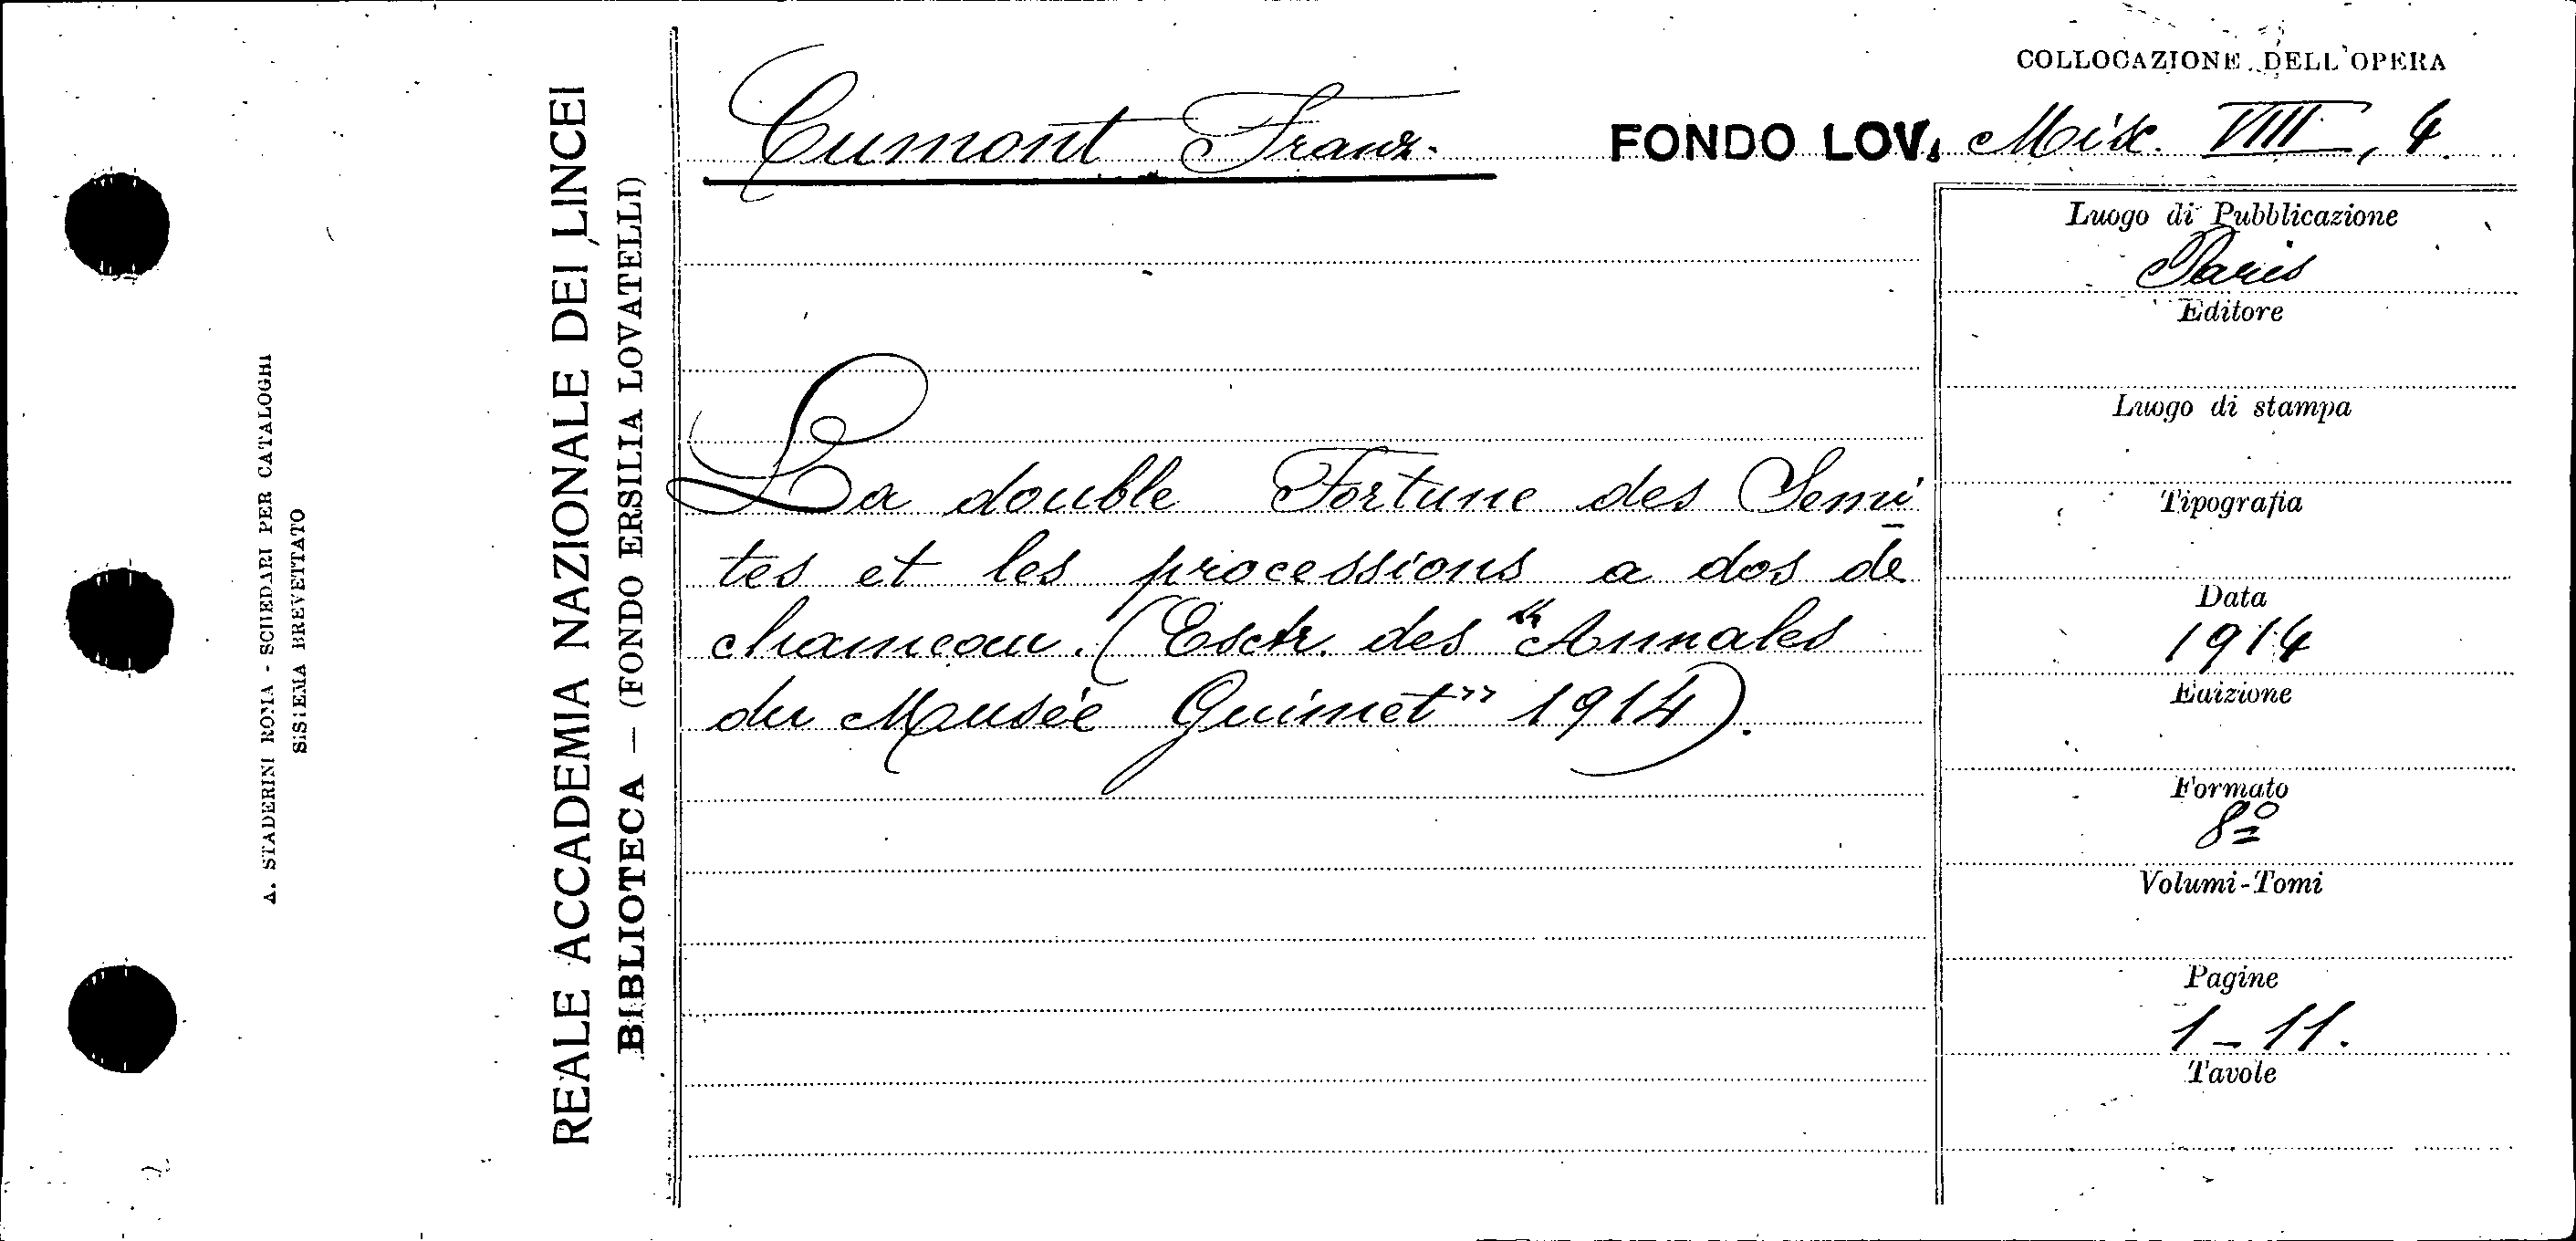 COLLOCAZIONE DELL'OPERA
Cumont Franz. FONDO LOV. Misc. VIII, 4.
La double Fortune des Semi-
tes et les processions a dos de
chameau. (Esctr. des "Annales
du Musée Guimet" 1914).
Luogo di Pubblicazione
Paris
Editore
Luogo di stampa
Tipografia
Data
1914
Edizione
Formato
8º
Volumi-Tomi
Pagine
1-11.
Tavole
REALE ACCADEMIA NAZIONALE DEI LINCEI
BIBLIOTECA — (FONDO ERSILIA LOVATELLI)
A. STADERINI ROMA - SCHEDARI PER CATALOGHI
SISTEMA BREVETTATO